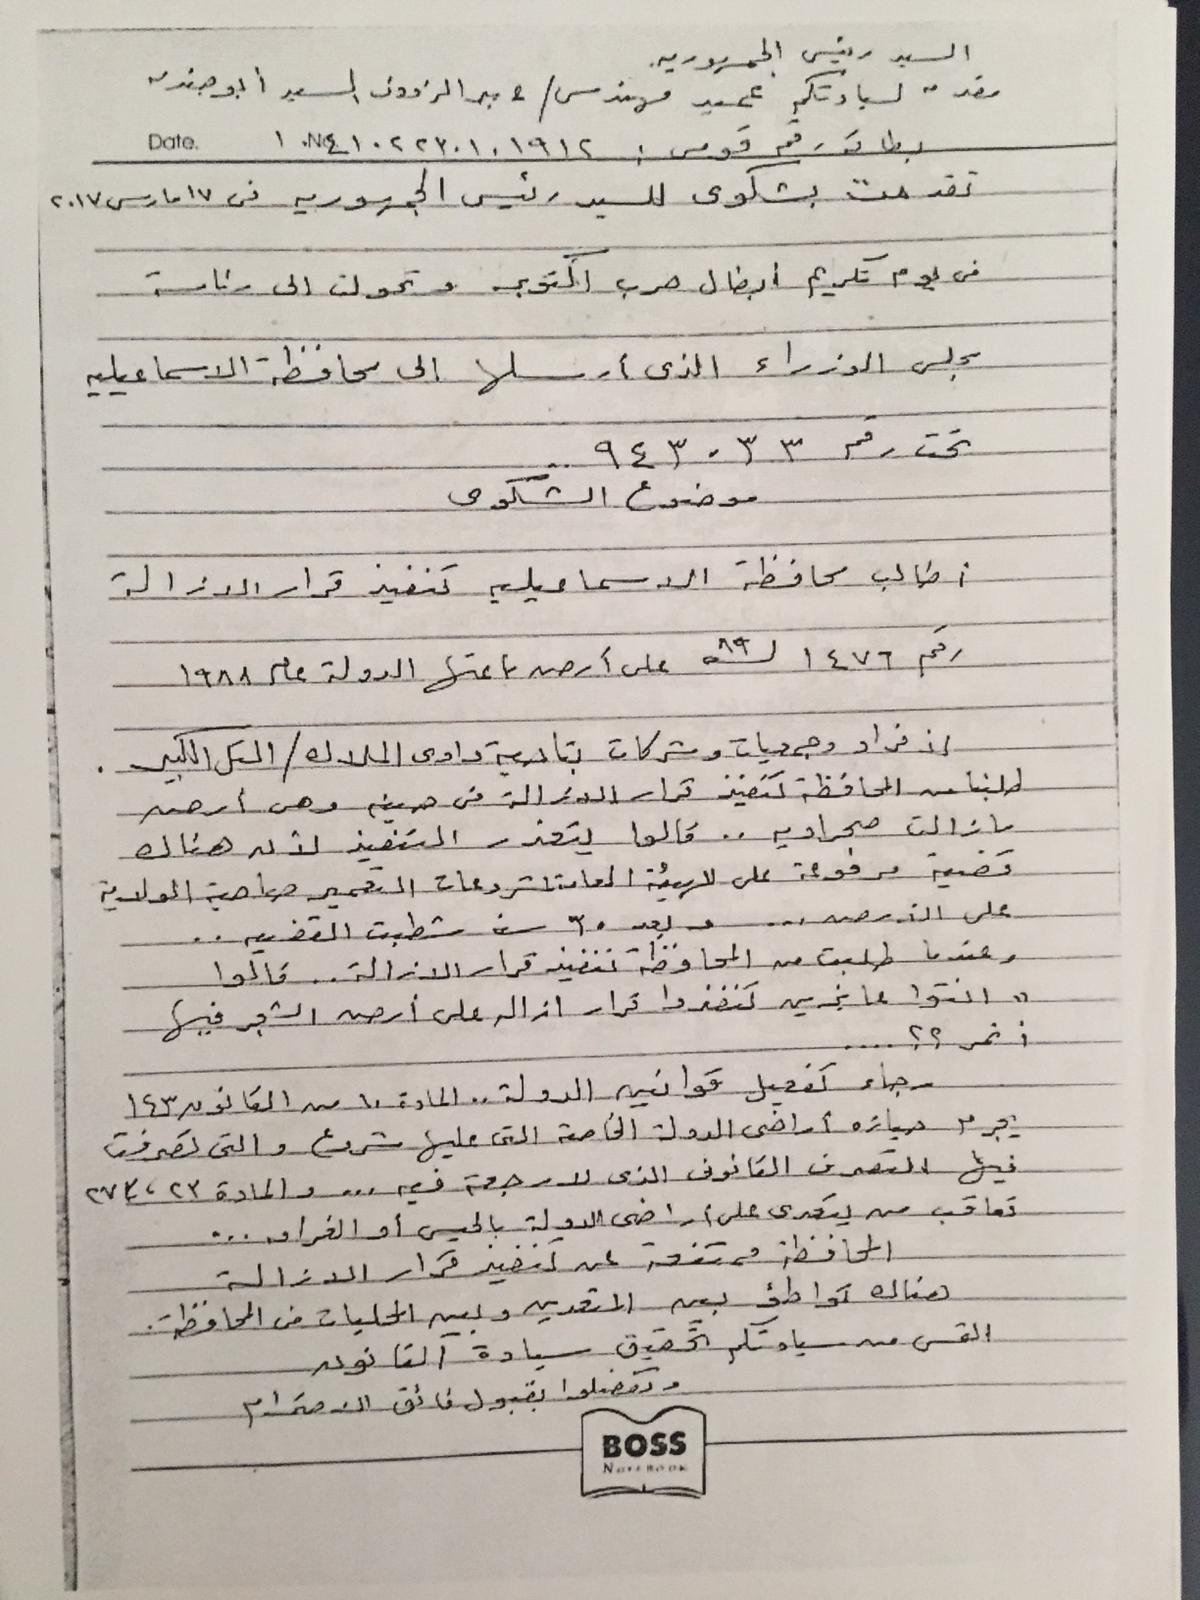 السيد رئيس الجمهوريه.
مقدمه لسيادتكم عميد مهندس / عبد الرؤوف السيد أبو جندیه
بطاقة رقم قومى :
Date. No.
تقدمت بشكوى للسيد رئيس الجمهوريه فى ١٧ مارس ٢٠١٧
فى يوم تكريم أبطال حرب اكتوبر وتحولت الى رئاسة
مجلس الوزراء الذى أرسلها الى محافظة الاسماعيليه
تحت رقم ٩٤٣٠٣٣ ..
موضوع الشكوى
أطالب محافظة الاسماعيليه تنفيذ قرار الازالة
رقم ١٤٧٦ لسنة ٨٩ على أرض باعتها الدولة عام ١٩٨٨
لأفراد وجمعيات وشركات بناحية وادى الملاك / التل الكبير .
طلبنا من المحافظة تنفيذ قرار الازالة فى حينه وهى أرض
مازالت صحراويه .. قالوا يتعذر التنفيذ لأن هناك
قضية مرفوعة على الهيئة العامة لمشروعات التعمير صاحبة الولاية
على الأرض ... وبعد ٣٠ سنة شطبت القضيه ..
وعندما طلبت من المحافظة تنفيذ قرار الازالة .. قالوا
" انتوا عايزين تنفذوا قرار ازاله على أرض الشجر فيها
أثمر ؟؟ ....
رجاء تفعيل قوانين الدولة .. المادة ١٠ من القانون ١٤٣
يجرم حيازه أراضى الدولة الخاصة التى عليها مشروع والتى تصرفت
فيها التصرف القانونى الذى لا رجعة فيه ... والمادة
تعاقب من يتعدى على أراضى الدولة بالحبس أو الغرامه ...
المحافظة ممتنعة عن تنفيذ قرار الازالة
هناك تواطئ بين المتعدين وبين المحليات فى المحافظة .
التمس من سيادتكم تحقيق سيادة القانون
وتفضلوا بقبول فائق الاحترام
BOSS
NOTEBOOK